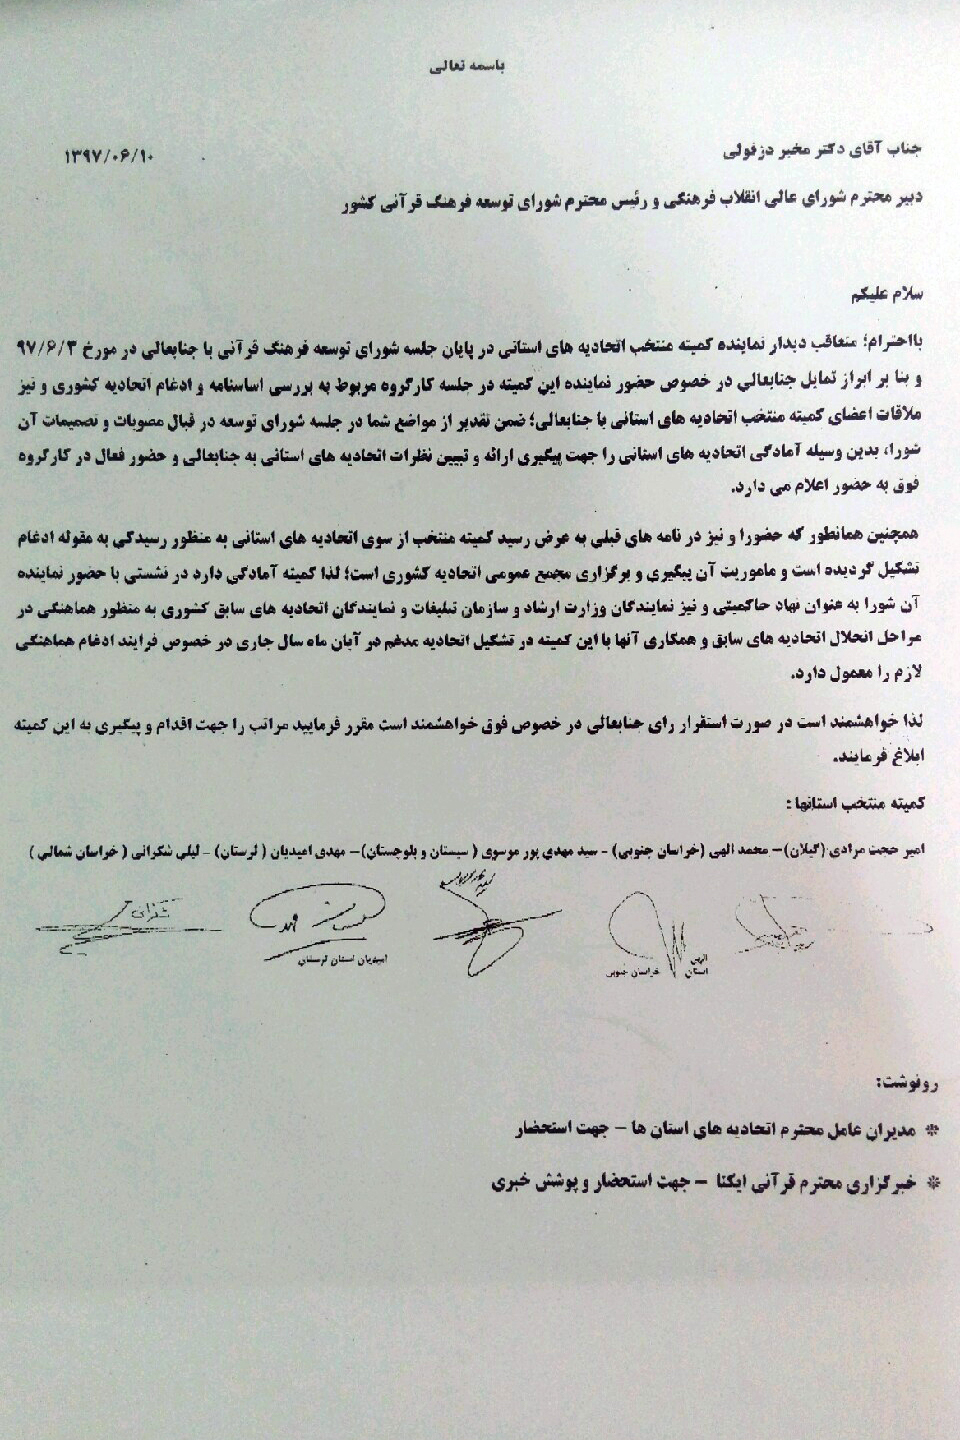 باسمه تعالی
جناب آقای دکتر مخبر دزفولی
۱۳۹۷/۰۶/۱۰
دبیر محترم شورای عالی انقلاب فرهنگی و رئیس محترم شورای توسعه فرهنگ قرآنی کشور
سلام علیکم
بااحترام؛ متعاقب دیدار نماینده کمیته منتخب اتحادیه های استانی در پایان جلسه شورای توسعه فرهنگ قرآنی با جنابعالی در مورخ ۹۷/۶/۳
و بنا بر ابراز تمایل جنابعالی در خصوص حضور نماینده این کمیته در جلسه کارگروه مربوط به بررسی اساسنامه و ادغام اتحادیه کشوری و نیز
ملاقات اعضای کمیته منتخب اتحادیه های استانی با جنابعالی؛ ضمن تقدیر از مواضع شما در جلسه شورای توسعه در قبال مصوبات و تصمیمات آن
شورا، بدین وسیله آمادگی اتحادیه های استانی را جهت پیگیری ارائه و تبیین نظرات اتحادیه های استانی به جنابعالی و حضور فعال در کارگروه
فوق به حضور اعلام می دارد.
همچنین همانطور که حضورا و نیز در نامه های قبلی به عرض رسید کمیته منتخب از سوی اتحادیه های استانی به منظور رسیدگی به مقوله ادغام
تشکیل گردیده است و ماموریت آن پیگیری و برگزاری مجمع عمومی اتحادیه کشوری است؛ لذا کمیته آمادگی دارد در نشستی با حضور نماینده
آن شورا به عنوان نهاد حاکمیتی و نیز نمایندگان وزارت ارشاد و سازمان تبلیغات و نمایندگان اتحادیه های سابق کشوری به منظور هماهنگی در
مراحل انحلال اتحادیه های سابق و همکاری آنها با این کمیته در تشکیل اتحادیه مدغم در آبان ماه سال جاری در خصوص فرایند ادغام هماهنگی
لازم را معمول دارد.
لذا خواهشمند است در صورت استقرار رای جنابعالی در خصوص فوق خواهشمند است مقرر فرمایید مراتب را جهت اقدام و پیگیری به این کمیته
ابلاغ فرمایند.
کمیته منتخب استانها :
امیر حجت مرادی (گیلان)– محمد الهی (خراسان جنوبی) - سید مهدی پور موسوی ( سیستان و بلوچستان)– مهدی امیدیان ( لرستان) - لیلی شکرانی ( خراسان شمالی )
شکرانی
امیدیان استان لرستان
الهی
استان خراسان جنوبی
رونوشت:
❊ مدیران عامل محترم اتحادیه های استان ها – جهت استحضار
❊ خبرگزاری محترم قرآنی ایکنا – جهت استحضار و پوشش خبری